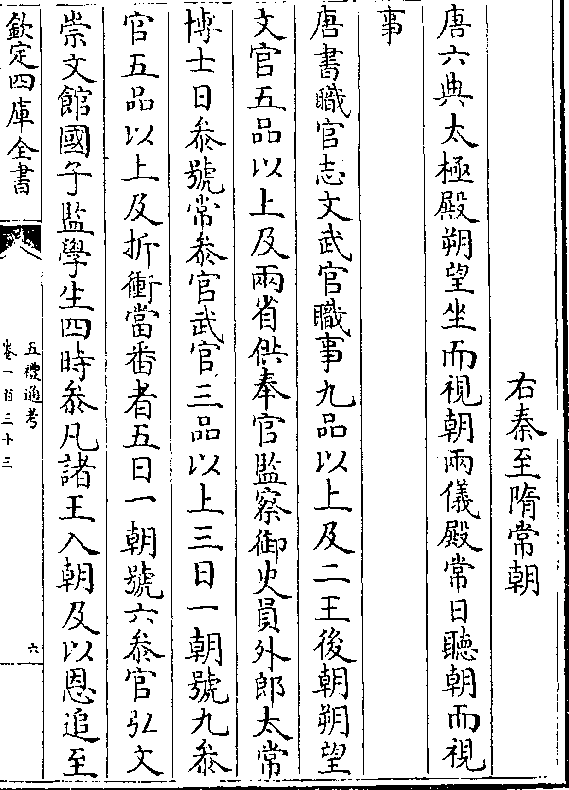 右秦至隋常朝
唐六典太極殿朔望坐而視朝兩儀殿常日聽朝而視
事
唐書職官志文武官職事九品以上及二王後朝朔望
文官五品以上及兩省供奉官監察御史員外郎太常
博士日叅號常叅官武官三品以上三日一朝號九叅
官五品以上及折衝當番者五日一朝號六叅官弘文
崇文館國子監學生四時叅凡諸王入朝及以恩追至
欽定四庫全書
五禮通考
卷一百三十三
六